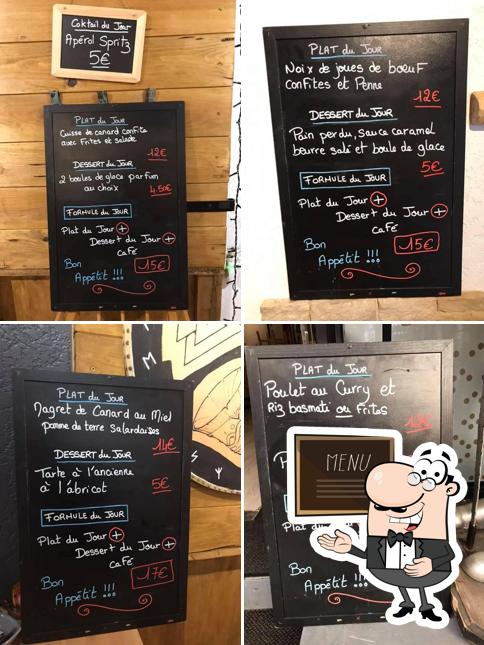 Coktail du Jour
Apérol Spritz
5€
PLAT du JOUR
Cuisse de canard confite
avec Frites et salade
12€
DESSERT du JOUR
2 boules de glace parfum
au choix
4.50€
FORMULE du JOUR
Plat du Jour +
Dessert du Jour +
café
15€
Bon
Appétit !!!
PLAT du JOUR
Noix de joues de boeuf
confites et Penne
12€
DESSERT du JOUR
Pain perdu, sauce caramel
beurre salé et boule de glace
5€
FORMULE du JOUR
Plat du Jour +
Dessert du Jour +
café
15€
Bon
Appétit !!!
PLAT du JOUR
Magret de Canard au Miel
pomme de terre salardaises
14€
DESSERT du JOUR
Tarte à l'ancienne
à l'abricot
5€
FORMULE du JOUR
Plat du Jour +
Dessert du Jour +
café
17€
Bon
Appétit !!!
PLAT du JOUR
Poulet au Curry et
Riz basmati ou Frites
MENU
Plat du
Bon
Appétit !!!